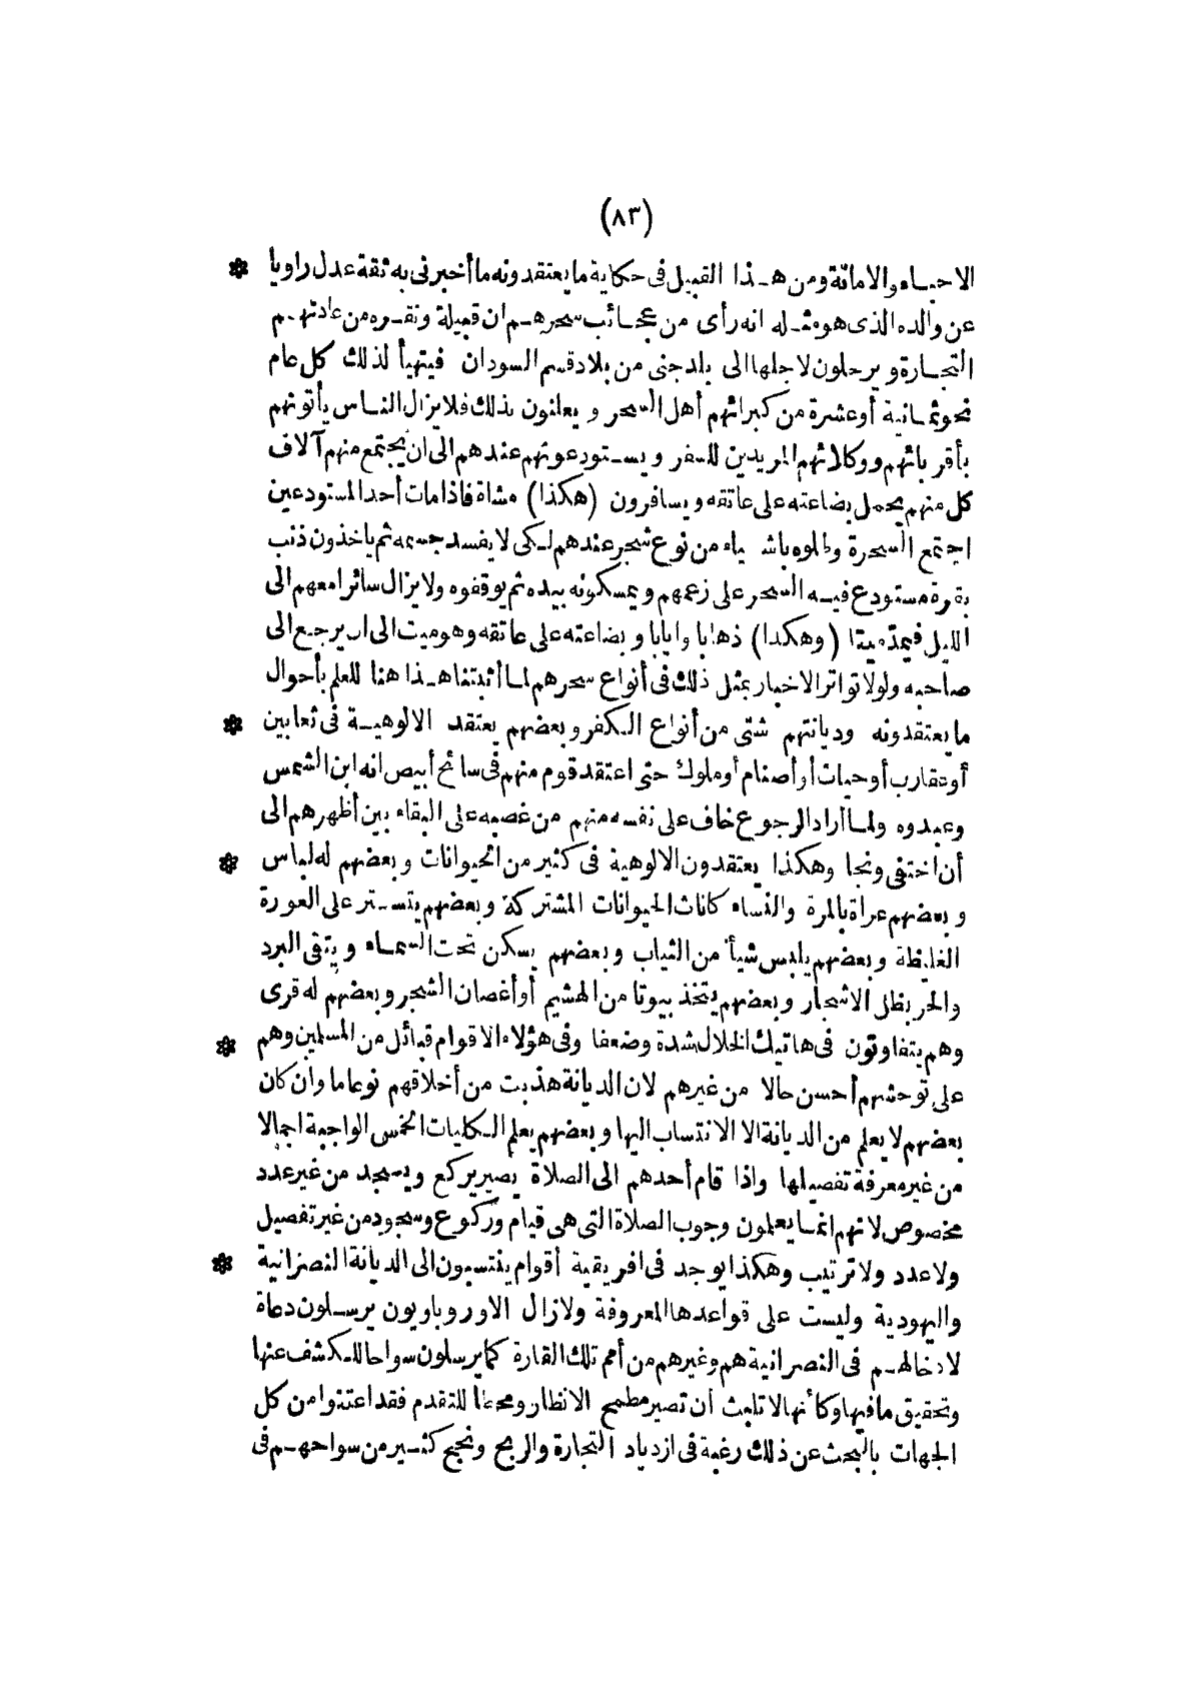 (٨٣)
الاحياء والاماتة ومن هـذا القبيل فى حكاية ما يعتقدونه ما أخبرنى به ثقة عدل راويا *
عن والده الذى هو مثـله انه رأى من عجـائب سحرهـم ان قبيلة ونقـره من عادتهـم
التجـارة ويرحلون لاجلها الى بلد جنى من بلاد قسم السودان فيتهيأ لذلك كل عام
نحو ثمـانية أو عشرة من كبرائهم أهل السحر ويعلنون بذلك فلا يزال النـاس يأتونهم
بأقربائهم ووكلائهم المريدين للسفر ويسـتودعونهم عندهم الى ان يجتمع منهم آلاف
كل منهم يحمل بضاعته على عاتقه ويسافرون (هكذا) مشاة فاذا مات أحد المستودعين
اجتمع السحرة وطلوه باشـياء من نوع شجر عندهم لـكى لا يفسد جسمه ثم ياخذون ذنب
بقرة مستودع فيـه السحر على زعمهم ويمسكونه بيده ثم يوقفوه ولا يزال سائرا معهم الى
الليل فيمدّ ميتا (وهكذا) ذهابا وايابا وبضاعته على عاتقه وهو ميت الى ان يرجـع الى
صاحبه ولولا تواتر الاخبار بمثل ذلك فى أنواع سحرهم لمـا أثبتناهـذا هنا للعلم بأحوال
ما يعتقدونه وديانتهم شتى من أنواع الـكفر وبعضهم يعتقد الالوهيـة فى ثعابين *
أو عقارب أو حيات أو أصنام أو ملوك حتى اعتقد قوم منهم فى سائح أبيض انه ابن الشمس
وعبدوه ولمـا أراد الرجوع خاف على نفسه منهم من غصبه على البقاء بين أظهرهم الى
أن اختفى ونجا وهكذا يعتقدون الالوهية فى كثير من الحيوانات وبعضهم له لباس *
وبعضهم عراة بالمرة والنساء كاناث الحيوانات المشتركة وبعضهم يتسـتر على العورة
الغليظة وبعضهم يلبس شيأ من الثياب وبعضهم يسكن تحت السمـاء ويتقى البرد
والحر بظل الاشجار وبعضهم يتخذ بيوتا من الهشيم أو أغصان الشجر وبعضهم له قرى
وهم يتفاوتون فى هاتيك الخلال شدة وضعفا وفى هؤلاء الاقوام قبائل من المسلمين وهم *
على توحشهم أحسن حالا من غيرهم لان الديانة هذبت من أخلاقهم نوعا ما وان كان
بعضهم لا يعلم من الديانة الا الانتساب اليها وبعضهم يعلم الـكليات الخمس الواجبة اجمالا
من غير معرفة تفصيلها واذا قام أحدهم الى الصلاة يصير يركع ويسجد من غير عدد
مخصوص لانهم انمـا يعلمون وجوب الصلاة التى هى قيام وركوع وسجود من غير تفصيل
ولا عدد ولا ترتيب وهكذا يوجد فى افريقية أقوام ينتسبون الى الديانة النصرانية *
واليهودية وليست على قواعدها المعروفة ولا زال الاوروباويون يرسـلون دعاة
لادخالهـم فى النصرانية هم وغيرهم من أمم تلك القارة كما يرسلون سواحا للـكشف عنها
وتحقيق ما فيها وكأنها لا تلبث أن تصير مطمح الانظار ومحطا للتقدم فقد اعتنوا من كل
الجهات بالبحث عن ذلك رغبة فى ازدياد التجارة والربح ونجح كثـير من سواحهـم فى